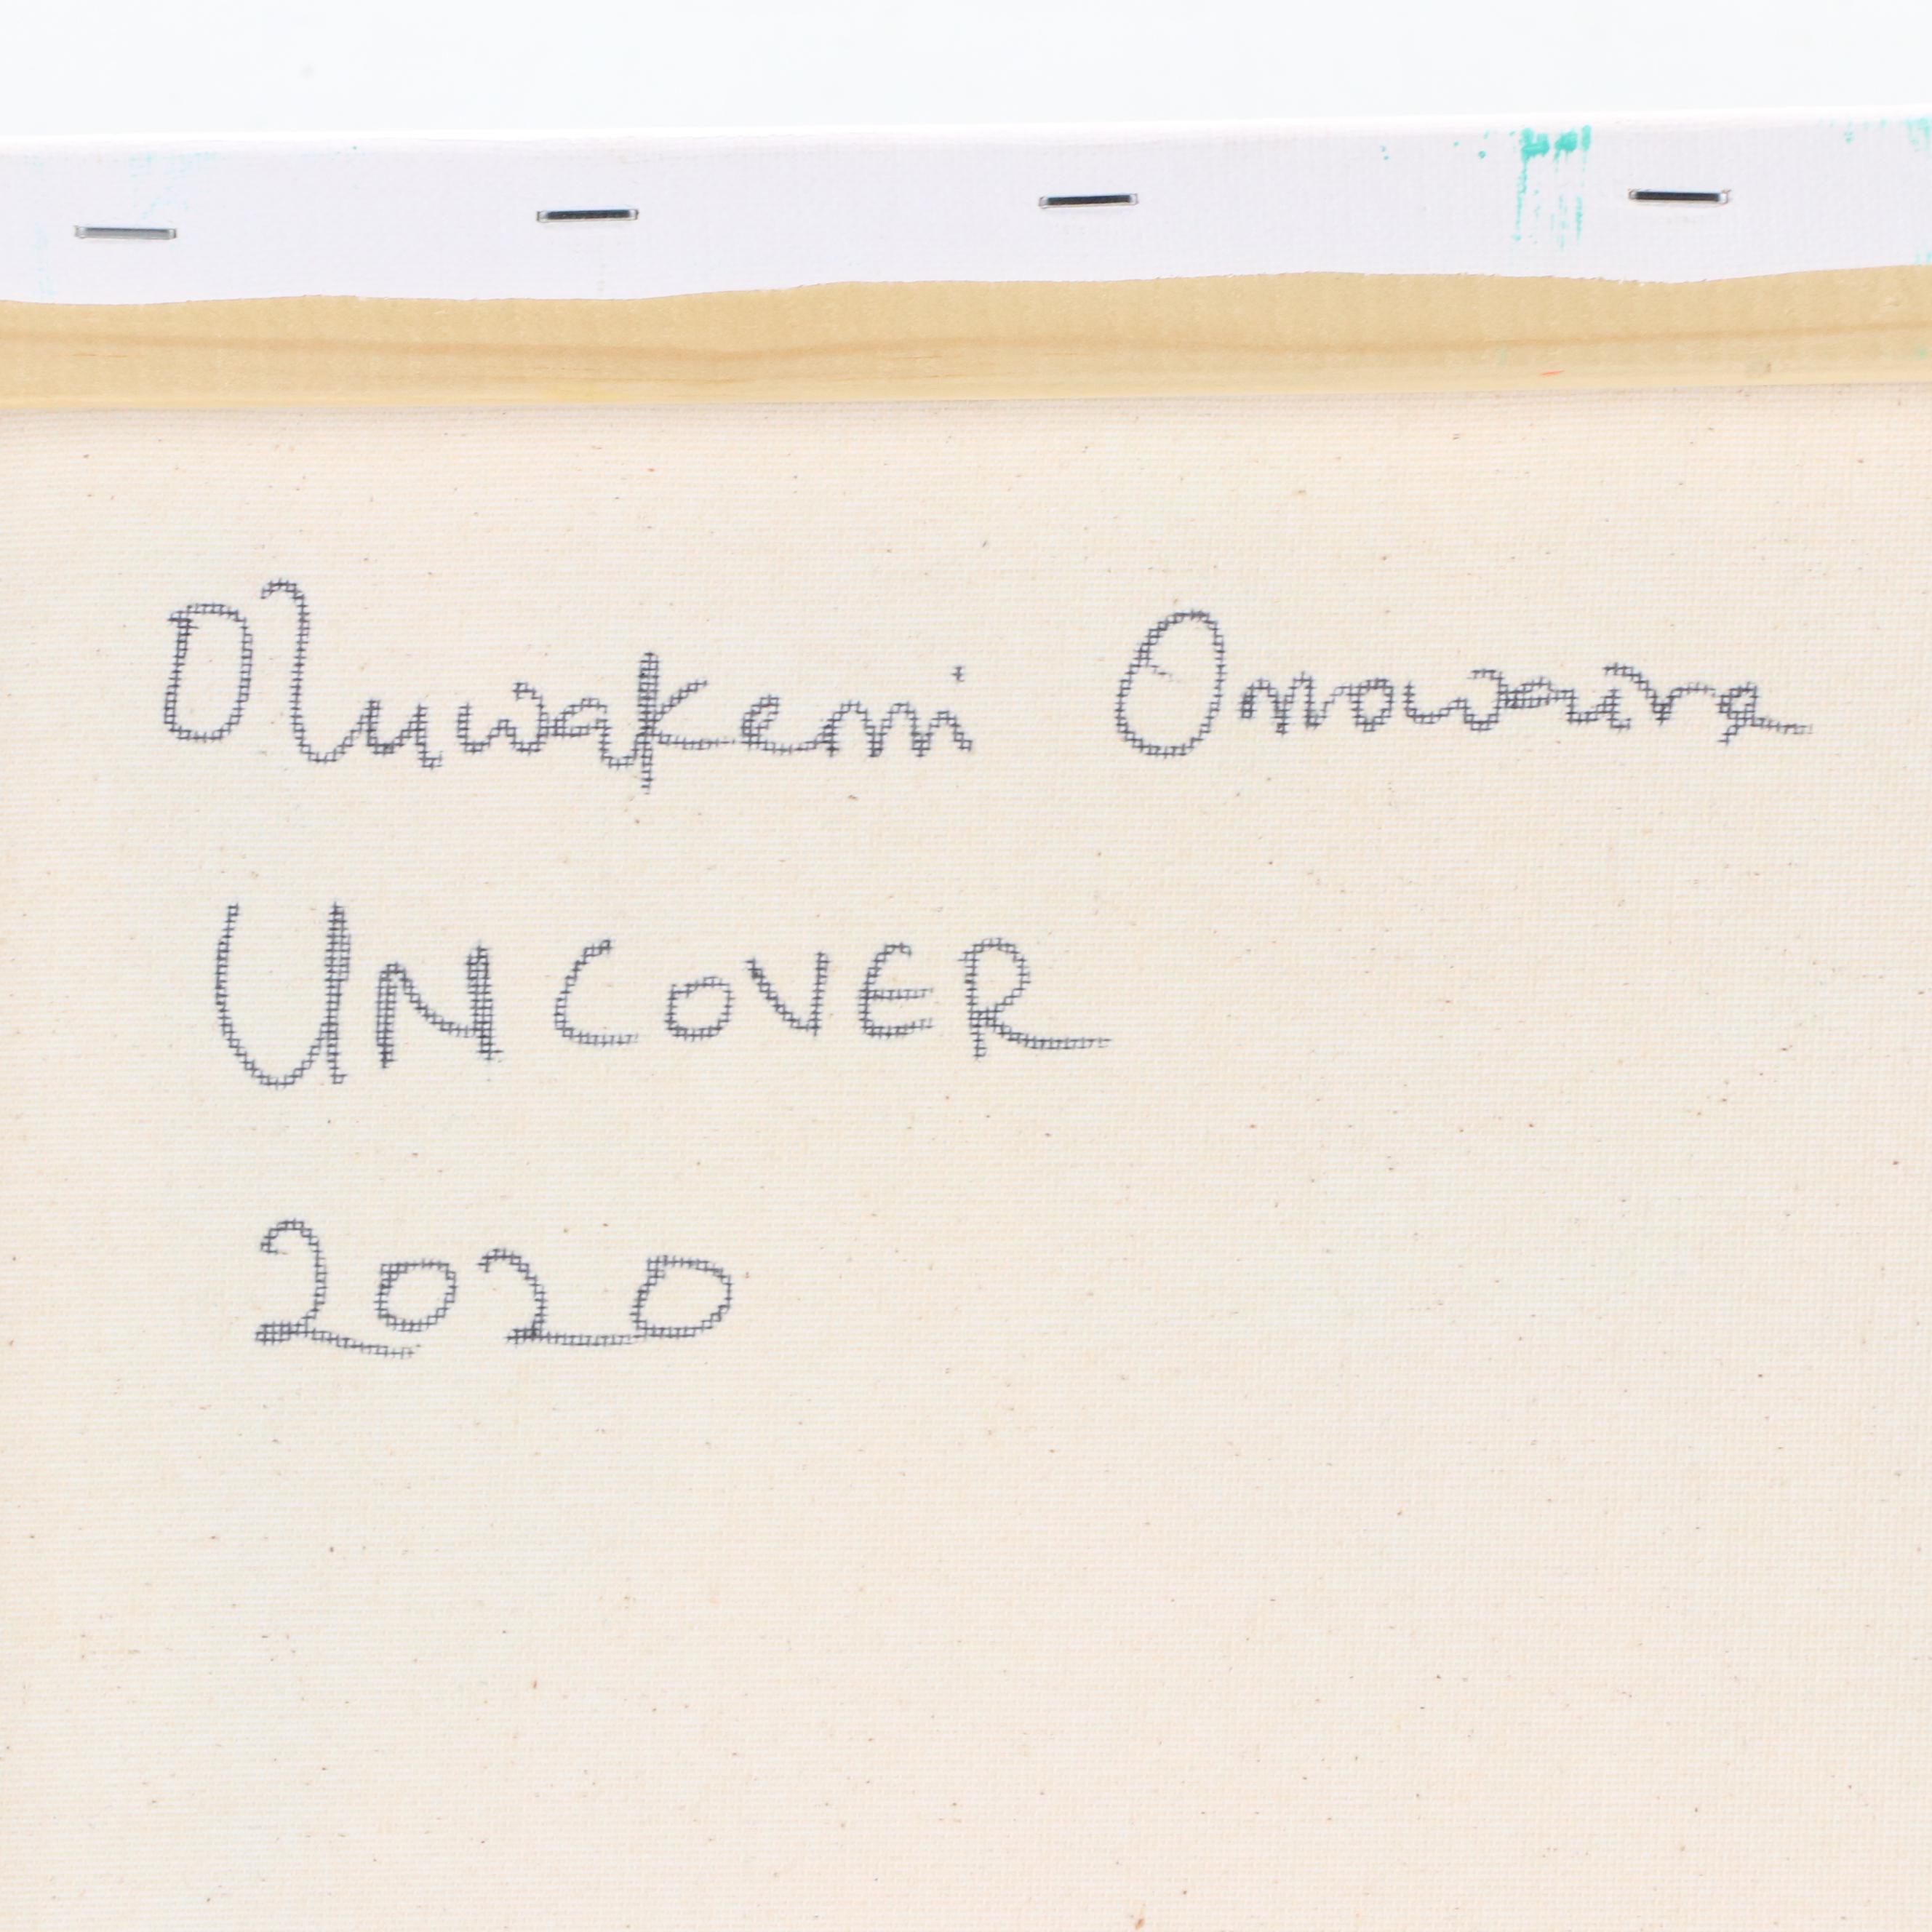 Oluwakemi Omowaire
UNCOVER
2020